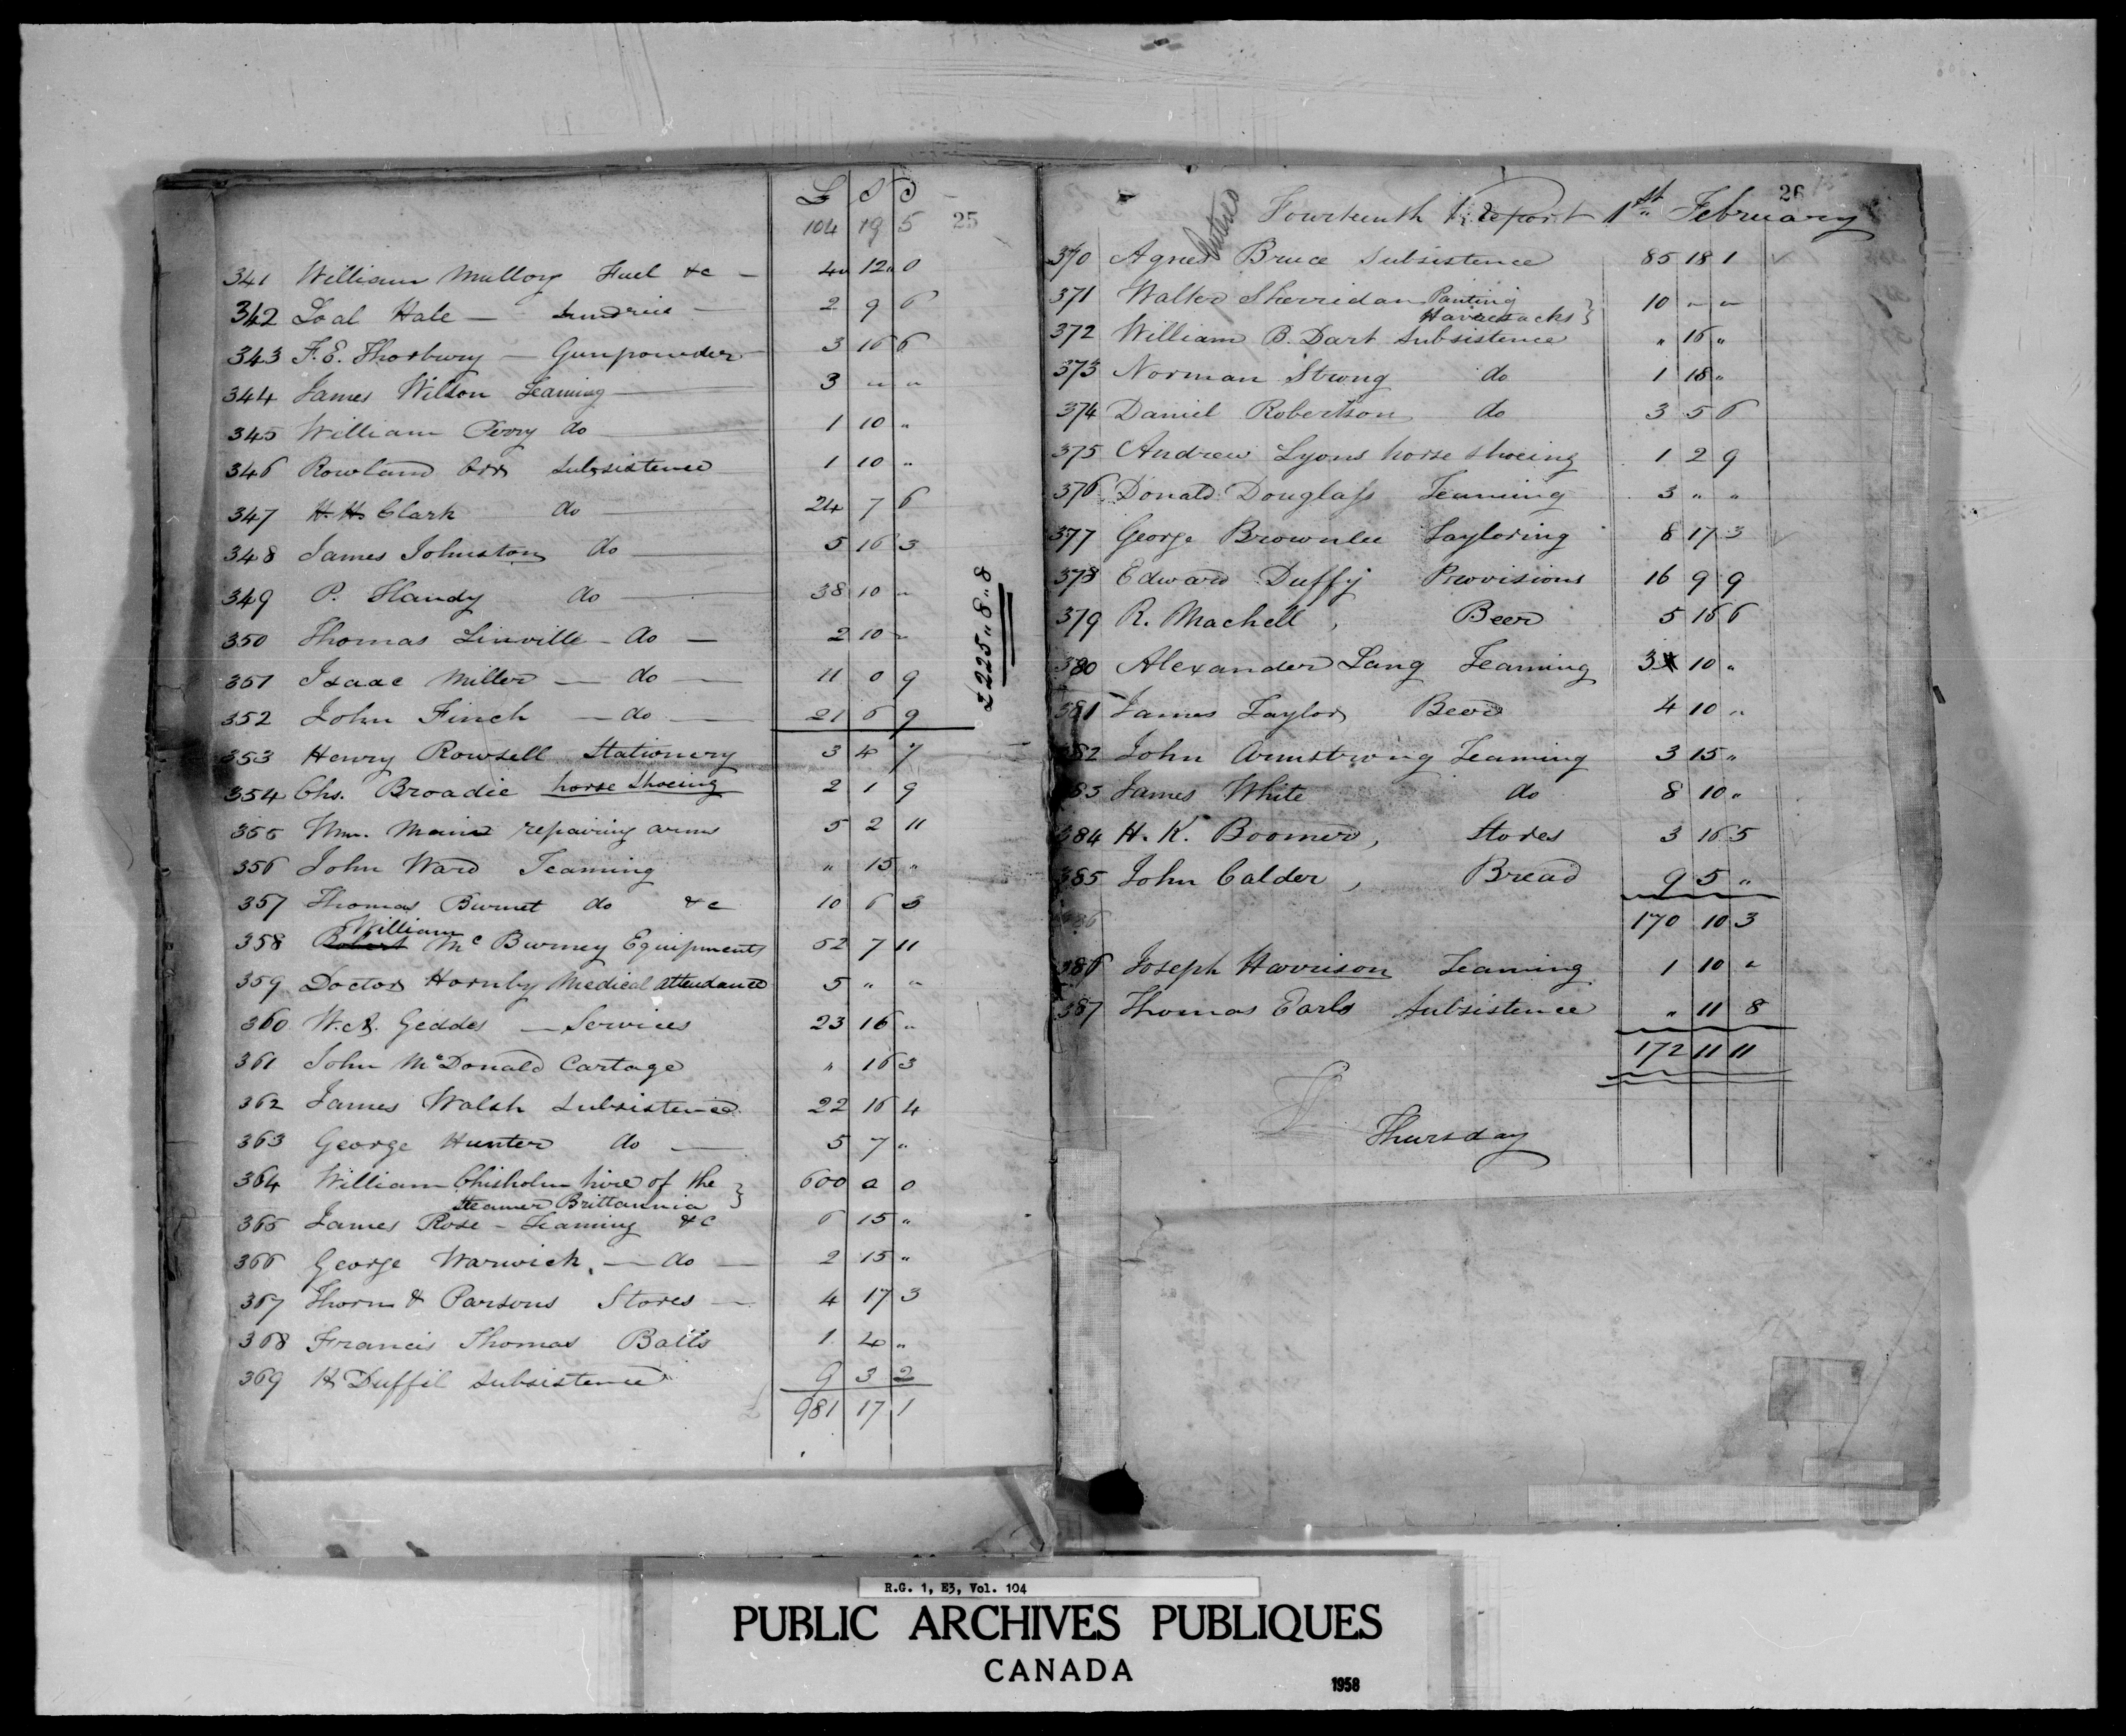 £ S D
104 19 5 25
341 William Mullory Fuel &c — 4 " 12 " 0
342 Loal Hale — Sundries — 2 9 6
343 F. E. Thorbury — Gunpowder 3 16 6
344 James Wilson Teaming — 3 " "
345 William Perry do — 1 10 "
346 Rowland Orr Subsistence 1 10 "
347 H. H. Clark do — 24 7 6
348 James Johnston do — 5 16 3
349 P. Handy do — 38 10 "
350 Thomas Linville — do — 2 10 "
351 Isaac Miller — do — 11 0 9
352 John Finch — do — 21 6 9
£225 " 8 " 8
353 Henry Rowsell Stationery 3 4 7
354 Chs. Broadie horse Shoeing 2 1 9
355 Wm. Main repairing arms 5 2 11
356 John Ward Teaming " 15 "
357 Thomas Burnet do &c 10 6 3
William
358 Robert McBurney Equipments 52 7 11
359 Doctor Hornby Medical attendance 5 " "
360 W. A. Geddes — Services 23 16 "
361 John McDonald Cartage " 16 3
362 James Walsh Subsistence 22 16 4
363 George Hunter do — 5 7 "
364 William Chisholm hire of the } 600 0 0
Steamer Brittannia
365 James Rose — Teaming &c 6 15 "
366 George Warwick, — do — 2 15 "
367 Thorn & Parsons Stores — 4 17 3
368 Francis Thomas Balls 1 4 "
369 H Duffil Subsistence 9 3 2
£ 981 17 1
26
Fourteenth Report 1st February
370 Agnes Bruce Subsistence 85 18 1
371 Walter Sherridan Panting } 10 " "
Haversacks
372 William B. Dart Subsistence " 16 "
373 Norman Strong do 1 18 "
374 Daniel Robertson do 3 5 6
375 Andrew Lyons horse shoeing 1 2 9
376 Donald Douglass Teaming 3 " "
377 George Brownlee Tayloring 8 17 3
378 Edward Duffy Provisions 16 9 9
379 R. Machell , Beer 5 16 6
380 Alexander Lang Teaming 3 10 "
381 James Taylor Beer 4 10 "
382 John Armstrong Teaming 3 15 "
383 James White do 8 10 "
384 H. K. Boomer, Stores 3 16 5
385 John Calder , Bread 9 5 "
170 10 3
386 Joseph Harrison Teaming 1 10 "
387 Thomas Earls Subsistence " 11 8
172 11 11
Thursday
R.G. 1, E3, Vol. 104
PUBLIC ARCHIVES PUBLIQUES
CANADA
1958